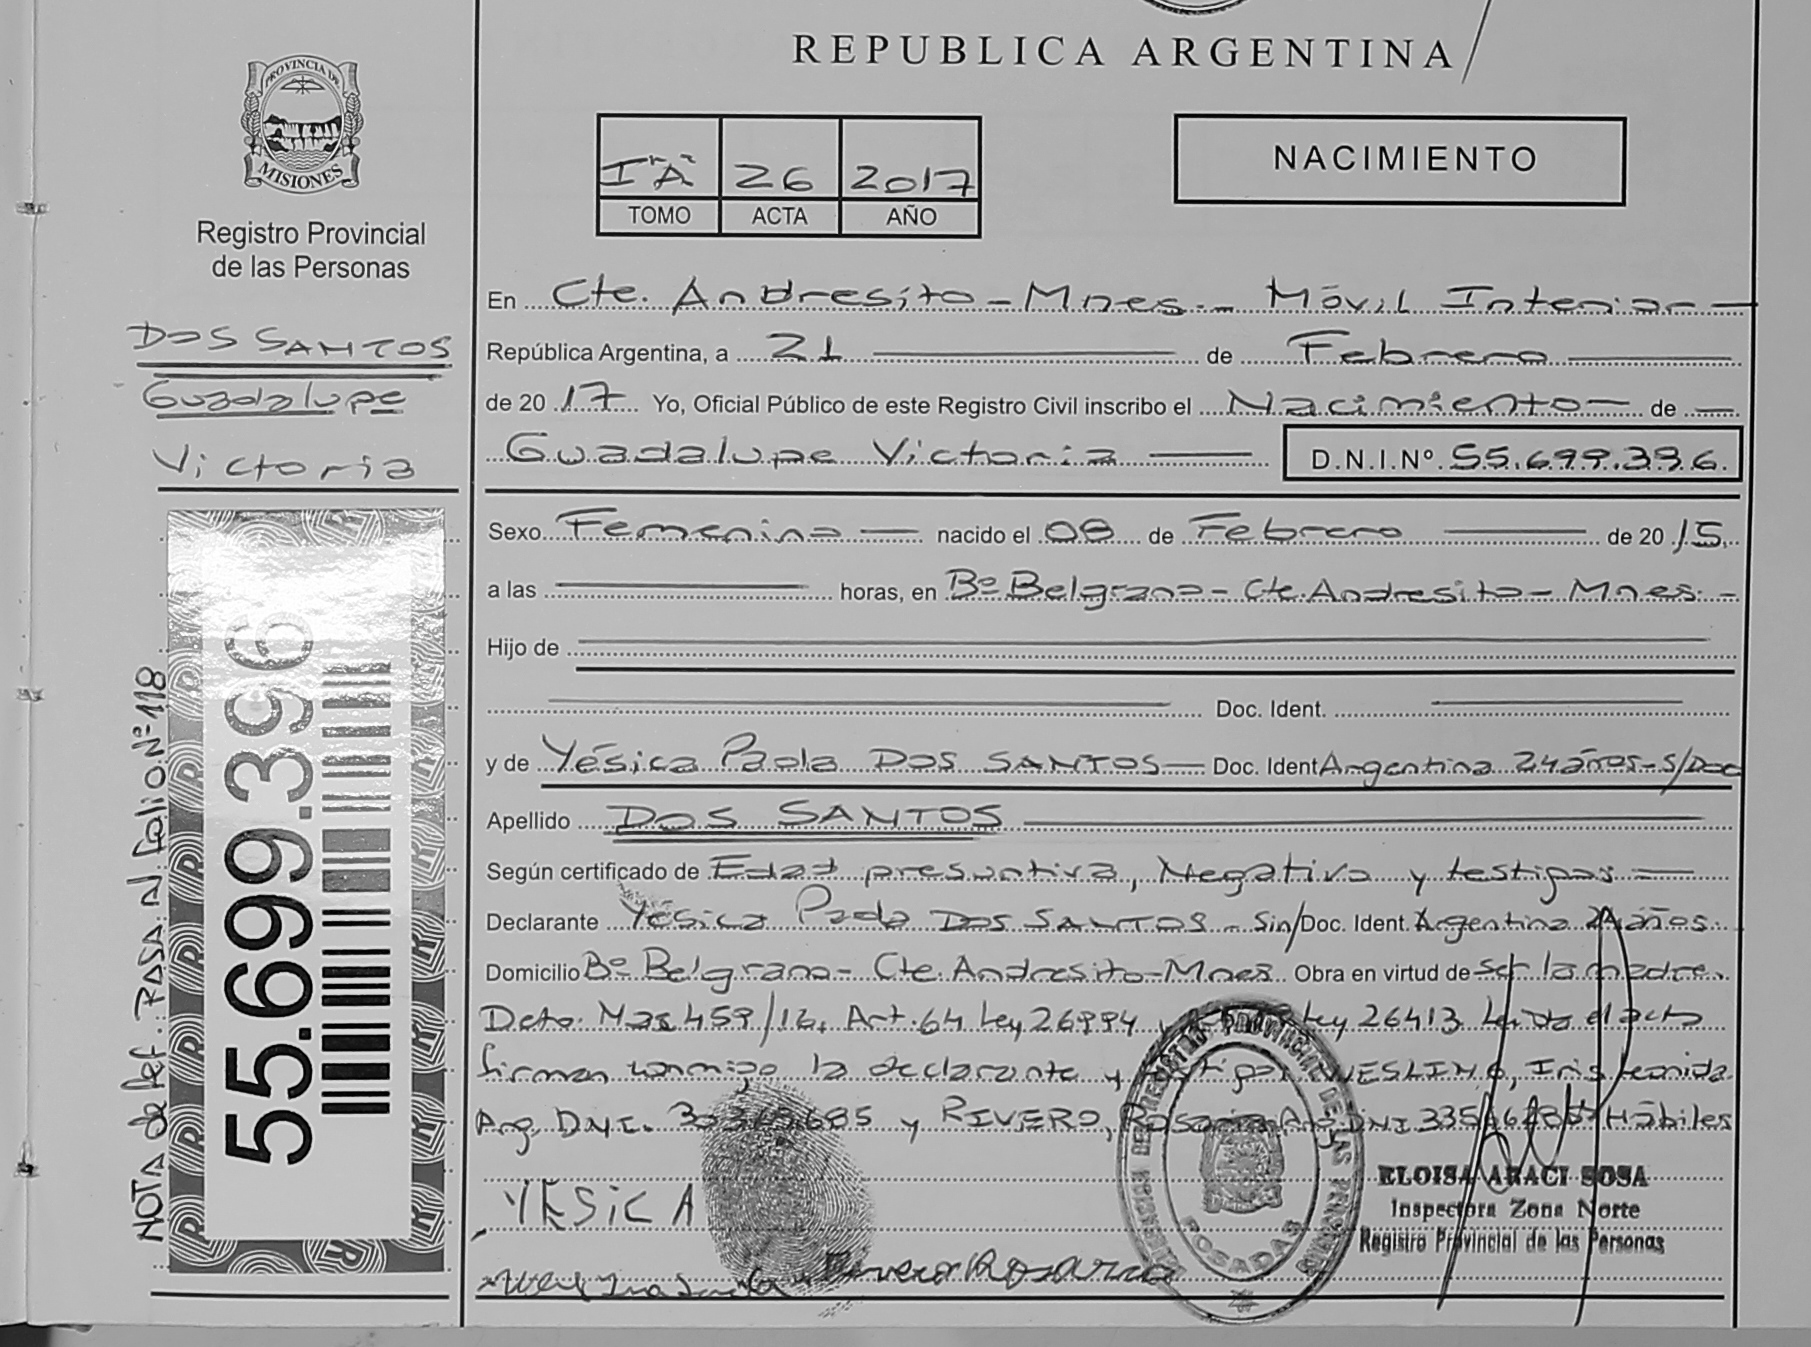 REPUBLICA ARGENTINA
PROVINCIA DE
MISIONES
Registro Provincial
de las Personas
DOS SANTOS
Guadalupe
Victoria
NOTA de Ref. PASA Al Folio Nº 118
55.699.396
26 2017
TOMO ACTA AÑO
NACIMIENTO
En Cte. Andresito - Mnes. - Móvil Interior -
República Argentina, a 21 de Febrero
de 20 17 Yo, Oficial Público de este Registro Civil inscribo el Nacimiento de
Guadalupe Victoria D.N.I.Nº. 55.699.396.
Sexo Femenino nacido el 08 de Febrero de 20 15
a las horas, en Bº Belgrano - Cte. Andresito - Mnes. -
Hijo de
Doc. Ident.
y de Yésica Paola DOS SANTOS Doc. Ident Argentina 24 años - S/Doc
Apellido DOS SANTOS
Según certificado de Edad presuntiva, Negativo y testigos
Declarante Yésica Paola DOS SANTOS - Sin/Doc. Ident. Argentina 24 años.
Domicilio Bº Belgrano - Cte. Andresito - Mnes Obra en virtud de ser la madre.
Dcto. 459/16, Art. 64 Ley 26994 y Ley 26413 Leida el acta
firman conmigo la declarante y
Arg. D.N.I. y RIVERO, Rosario Arg. DNI Hábiles
YESICA
Rivero Rosario
REGISTRO PROVINCIAL DE LAS PERSONAS
POSADAS
ELOISA ARACI SOSA
Inspectora Zona Norte
Registro Provincial de las Personas